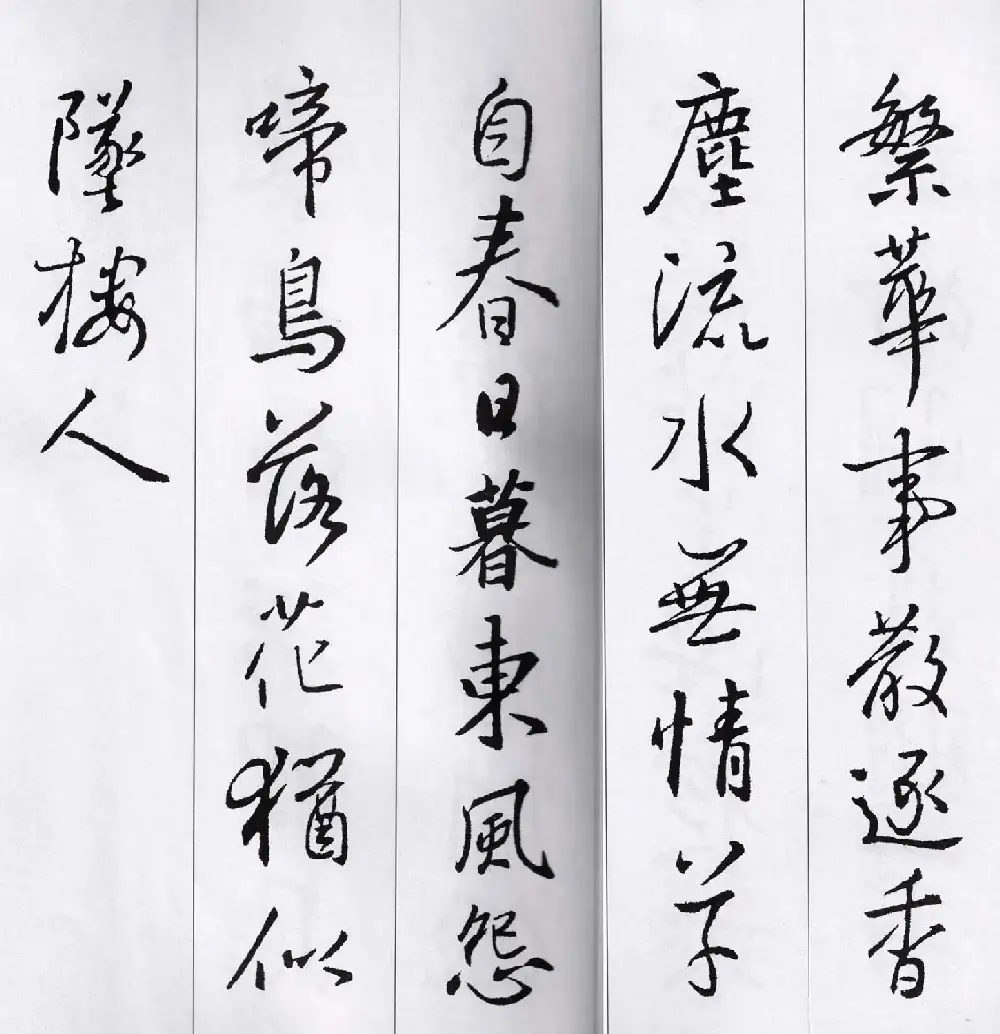 繁華事散逐香
塵流水無情草
自春日暮東風怨
啼鳥落花猶似
墜樓人